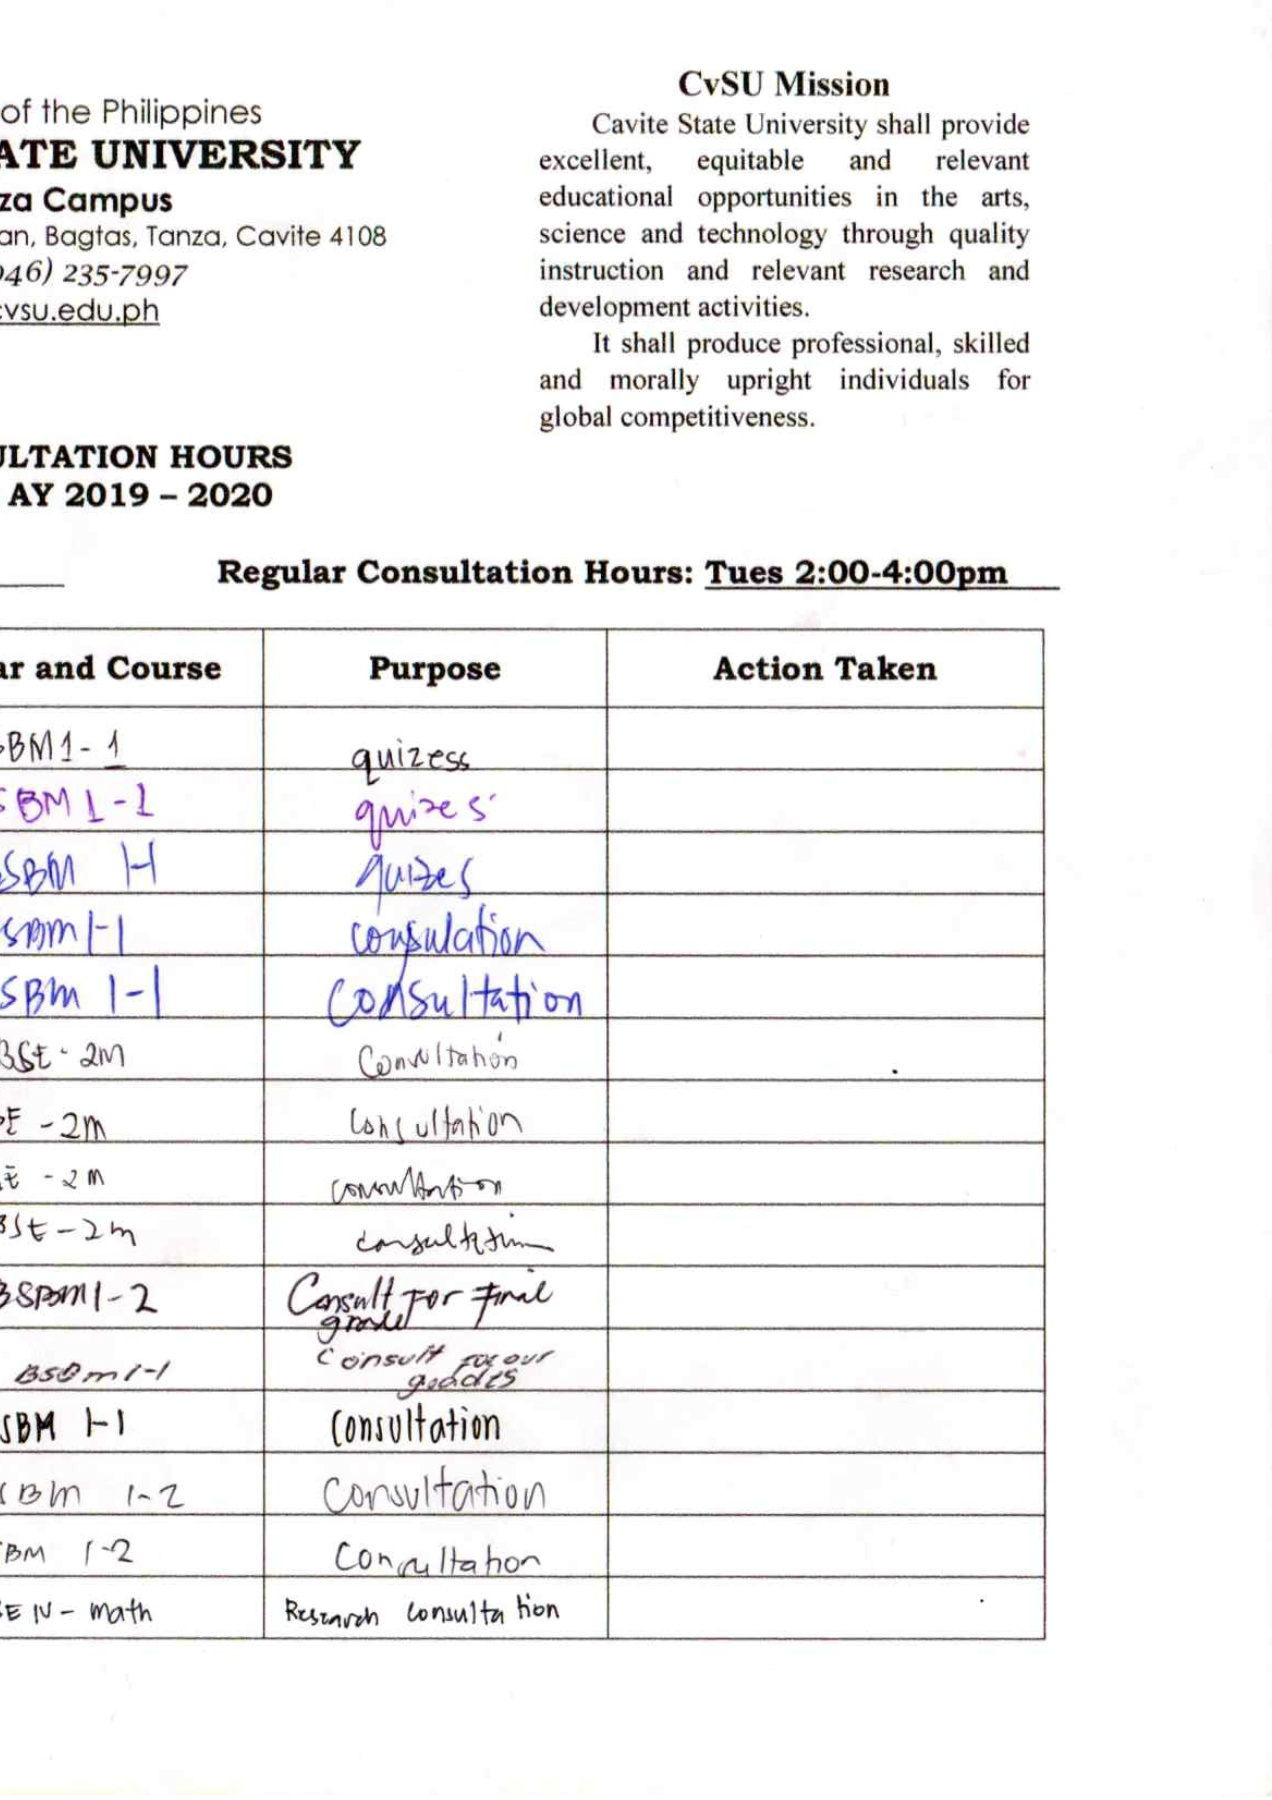 of the Philippines
ATE UNIVERSITY
za Campus
an, Bagtas, Tanza, Cavite 4108
046) 235-7997
cvsu.edu.ph
CvSU Mission
Cavite State University shall provide
excellent, equitable and relevant
educational opportunities in the arts,
science and technology through quality
instruction and relevant research and
development activities.
It shall produce professional, skilled
and morally upright individuals for
global competitiveness.
ULTATION HOURS
AY 2019 – 2020
Regular Consultation Hours: Tues 2:00-4:00pm
ar and Course Purpose Action Taken
BM1-1 quizess
SBM 1-1 quizes
SBM 1-1 quizes
SBM 1-1 consulation
SBM 1-1 Consultation
BSE - 2M Consultation
E - 2M Consultation
E - 2M consultation
BSE - 2m consultation
BSBM 1-2 Consult For Final
grade
BSBM 1-1 Consult for our
grades
SBM 1-1 Consultation
SBM 1-2 Consultation
BM 1-2 Consultation
E IV - math Research consultation